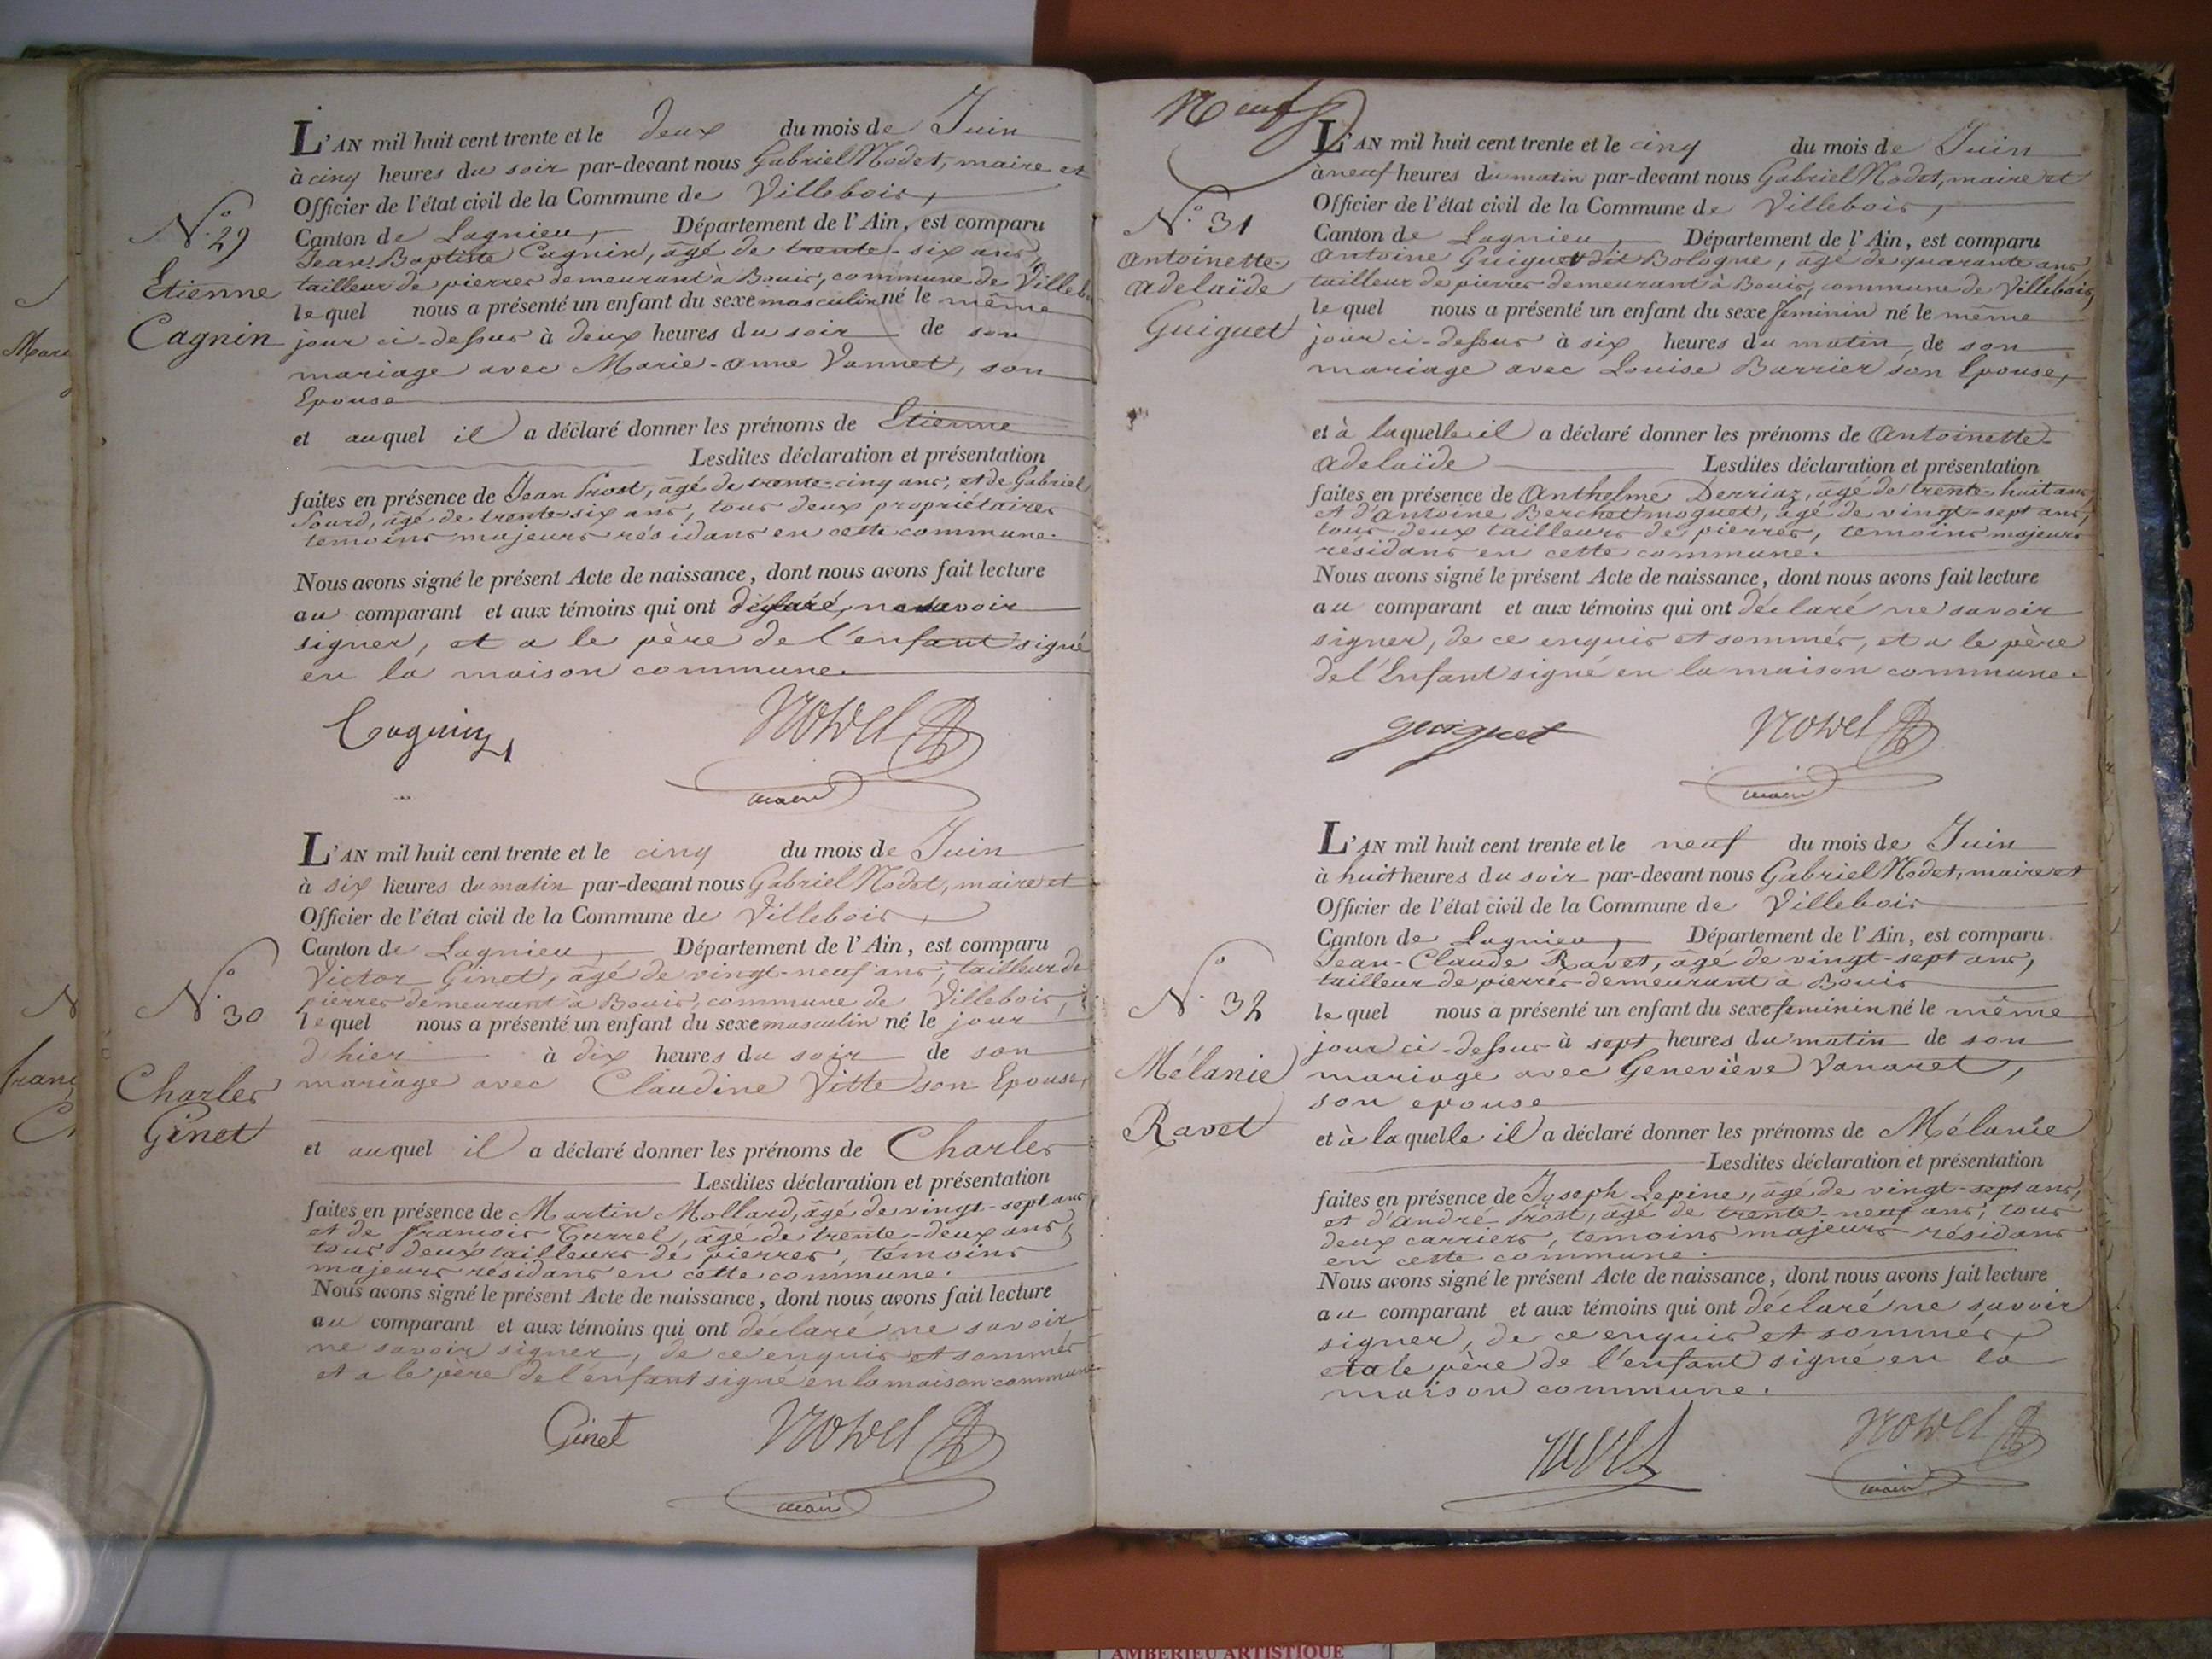 L'AN mil huit cent trente et le deux du mois de Juin
à cinq heures du soir par-devant nous Gabriel Nodet, maire et
Officier de l'état civil de la Commune de Villebois,
Canton de Lagnieu, Département de l'Ain, est comparu
Jean-Baptiste Cagnin, âgé de trente-six ans,
tailleur de pierres demeurant à Bouis, commune de Villeb
lequel nous a présenté un enfant du sexe masculin né le même
jour ci-dessus à deux heures du soir de son
mariage avec Marie-Anne Vannet, son
Epouse
et auquel il a déclaré donner les prénoms de Etienne
Lesdites déclaration et présentation
faites en présence de Jean Prost, âgé de trente-cinq ans, et de Gabriel
Sourd, âgé de trente-six ans, tous deux propriétaires
témoins majeurs résidans en cette commune.
Nous avons signé le présent Acte de naissance, dont nous avons fait lecture
au comparant et aux témoins qui ont déclaré, ne savoir
signer, et a le père de l'enfant signé
en la maison commune.
N.° 29
Etienne
Cagnin
Cagnin
Nodet
maire
L'AN mil huit cent trente et le cinq du mois de Juin
à six heures du matin par-devant nous Gabriel Nodet, maire et
Officier de l'état civil de la Commune de Villebois,
Canton de Lagnieu, Département de l'Ain, est comparu
Victor Ginet, âgé de vingt-neuf ans, tailleur de
pierres demeurant à Bouis, commune de Villebois,
lequel nous a présenté un enfant du sexe masculin né le jour
d'hier à dix heures du soir de son
mariage avec Claudine Vitte son Epouse,
et auquel il a déclaré donner les prénoms de Charles
Lesdites déclaration et présentation
faites en présence de Martin Mollard, âgé de vingt-sept ans
et de françois Curret, âgé de trente-deux ans,
tous deux tailleurs de pierres, témoins
majeurs résidans en cette commune.
Nous avons signé le présent Acte de naissance, dont nous avons fait lecture
au comparant et aux témoins qui ont déclaré ne savoir
ne savoir signer, de ce enquis et sommés
et a le père de l'enfant signé en la maison commune
N.° 30
Charles
Ginet
Ginet
Nodet
maire
Neuf
L'AN mil huit cent trente et le cinq du mois de Juin
à neuf heures du matin par-devant nous Gabriel Nodet, maire et
Officier de l'état civil de la Commune de Villebois,
Canton de Lagnieu, Département de l'Ain, est comparu
Antoine Guiguet dit Bologne, âgé de quarante ans,
tailleur de pierres demeurant à Bouis, commune de Villebois,
lequel nous a présenté un enfant du sexe féminin né le même
jour ci-dessus à six heures du matin, de son
mariage avec Louise Barrier son Epouse,
et à laquelle il a déclaré donner les prénoms de Antoinette-
Adelaïde Lesdites déclaration et présentation
faites en présence de Anthelme Derriaz, âgé de trente-huit ans,
et d'Antoine Berchet moguet, âgé de vingt-sept ans,
tous deux tailleurs de pierres, témoins majeurs
résidans en cette commune.
Nous avons signé le présent Acte de naissance, dont nous avons fait lecture
au comparant et aux témoins qui ont déclaré ne savoir
signer, de ce enquis et sommés, et a le père
de l'Enfant signé en la maison commune.
N.° 31
Antoinette-
Adelaïde
Guiguet
guiguet
Nodet
maire
L'AN mil huit cent trente et le neuf du mois de Juin
à huit heures du soir par-devant nous Gabriel Nodet, maire et
Officier de l'état civil de la Commune de Villebois
Canton de Lagnieu, Département de l'Ain, est comparu
Jean-Claude Ravet, âgé de vingt-sept ans,
tailleur de pierres demeurant à Bouis
lequel nous a présenté un enfant du sexe féminin né le même
jour ci-dessus à sept heures du matin de son
mariage avec Geneviève Vanaret,
son epouse
et à laquelle il a déclaré donner les prénoms de Mélanie
Lesdites déclaration et présentation
faites en présence de Joseph Lepine, âgé de vingt-sept ans,
et d'andré Prost, âgé de trente-neuf ans, tous
deux carriers, témoins majeurs résidans
en cette commune.
Nous avons signé le présent Acte de naissance, dont nous avons fait lecture
au comparant et aux témoins qui ont déclaré ne savoir
signer, de ce enquis et sommés,
et a le père de l'enfant signé en la
maison commune.
N.° 32
Mélanie
Ravet
Nodet
maire
AMBERIEU ARTISTIQUE